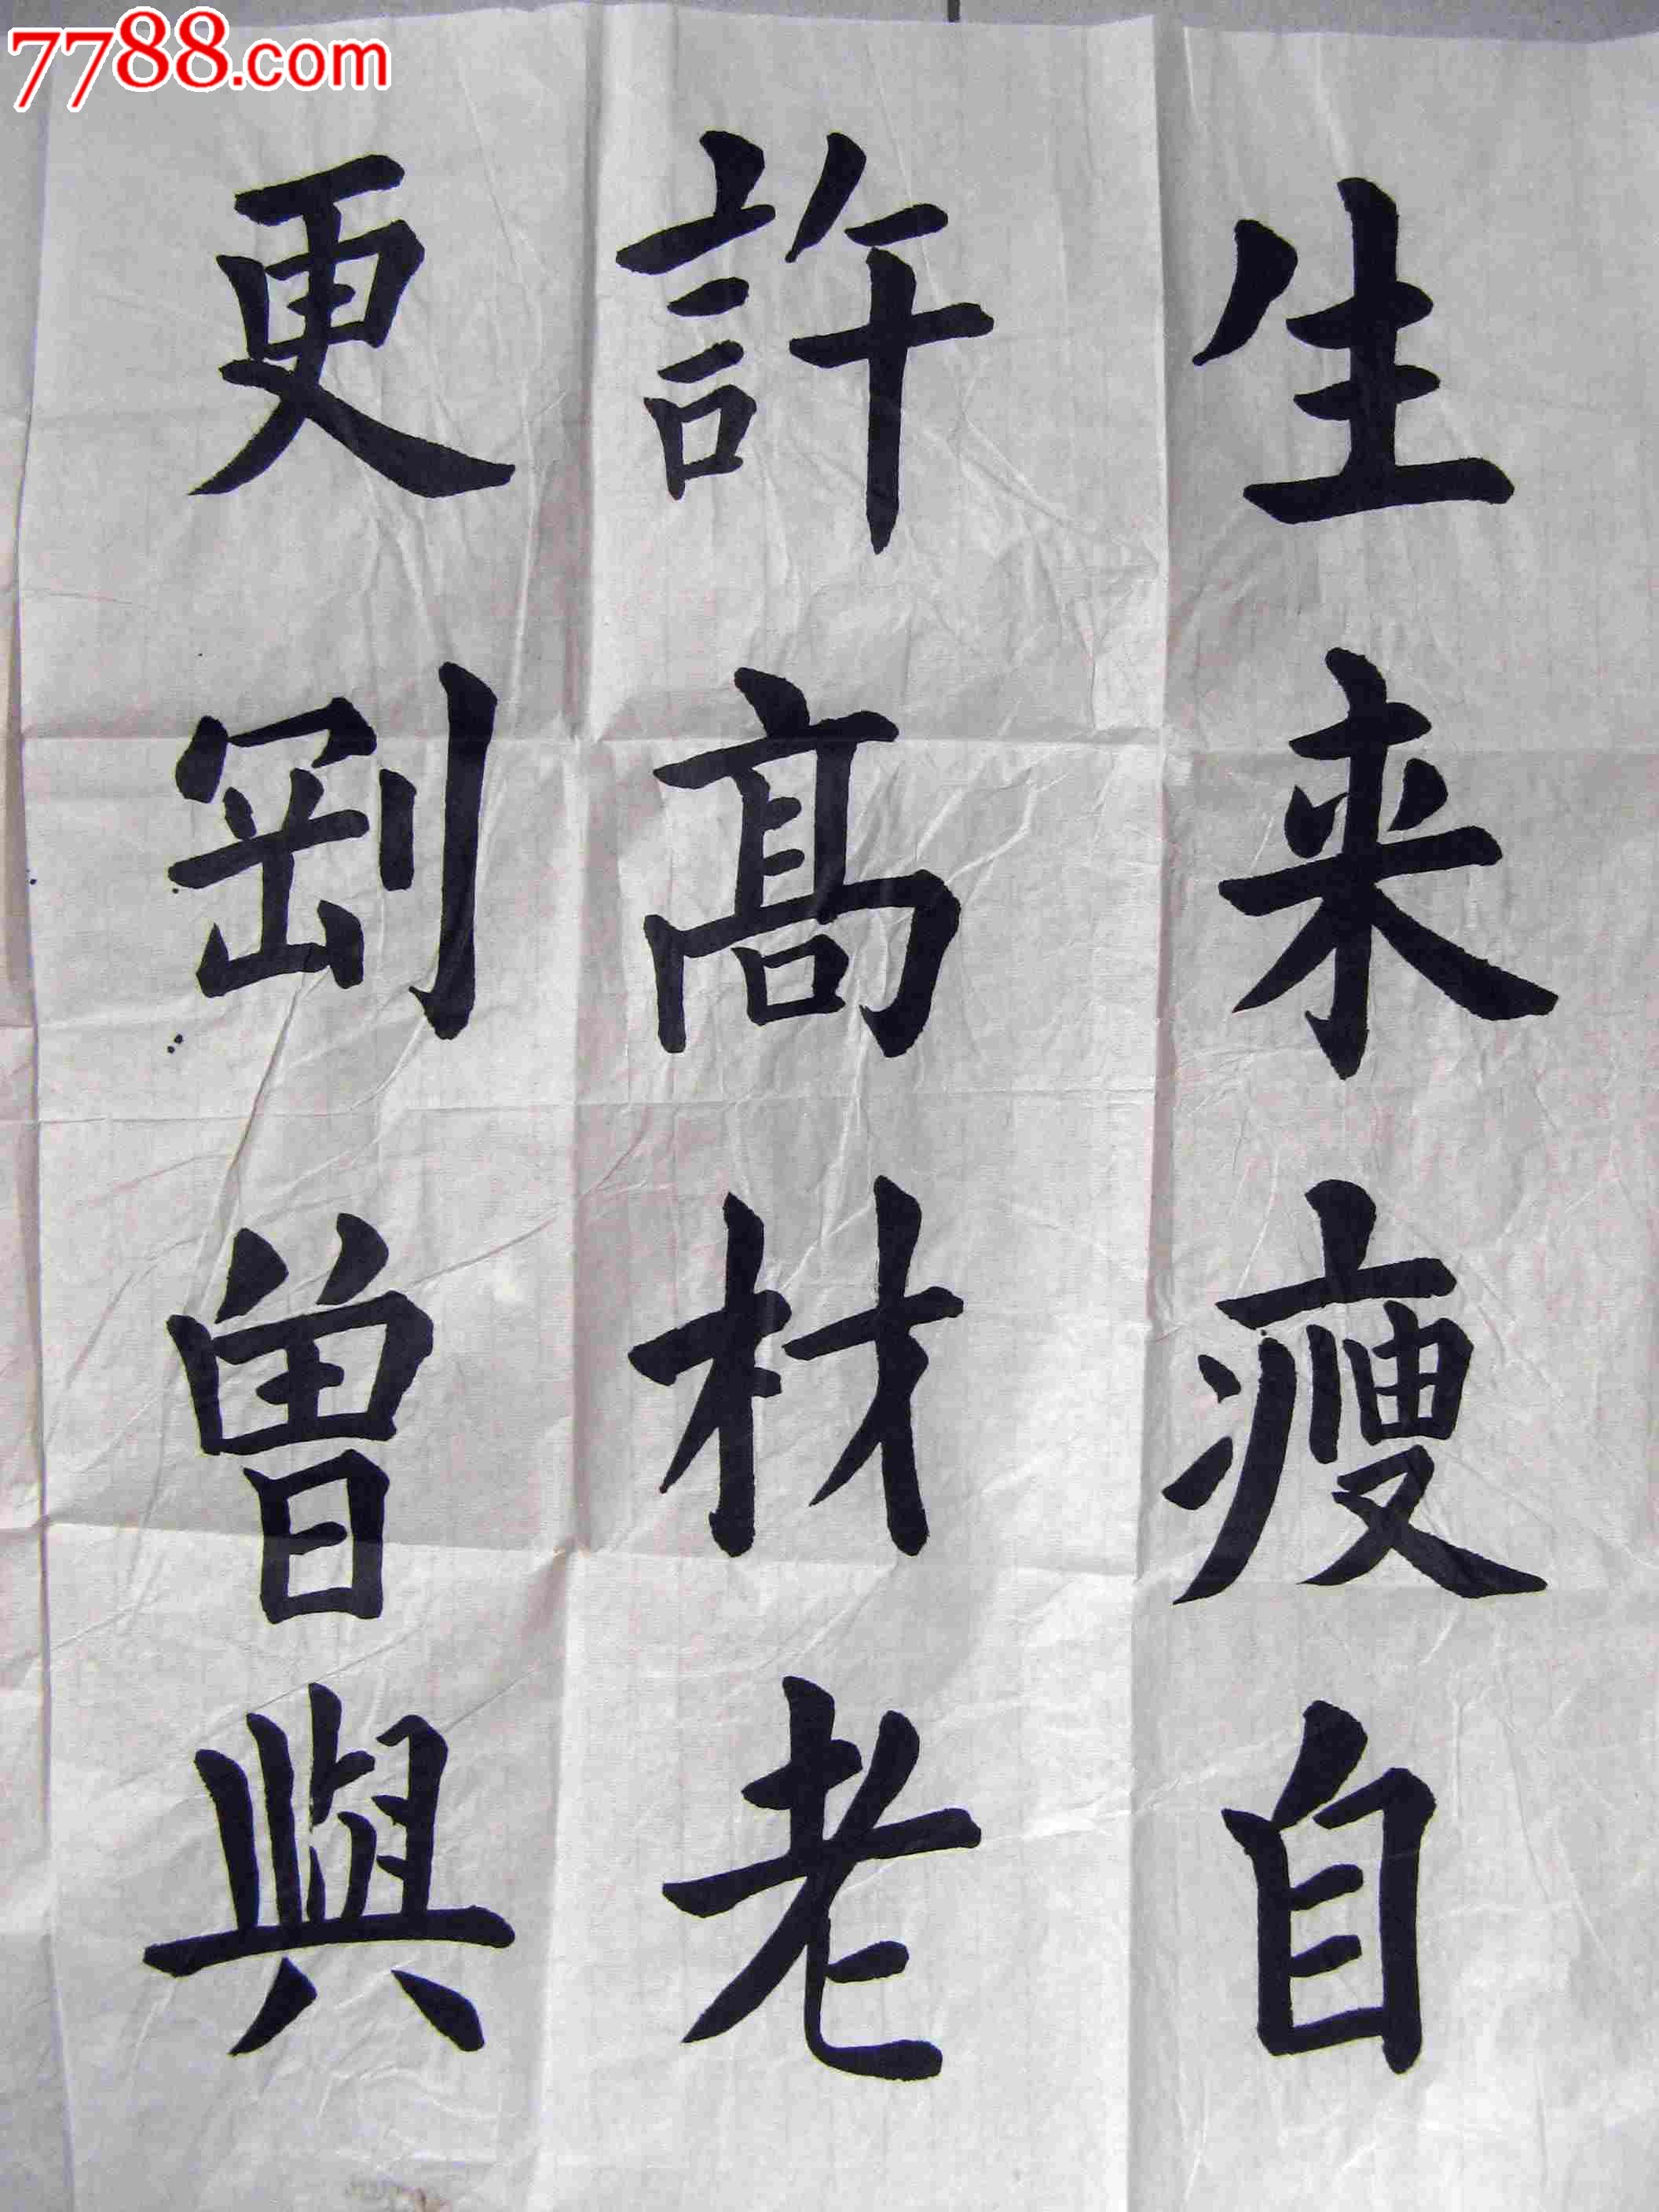 7788.com
生来瘦自
許髙材老
更剛曽與